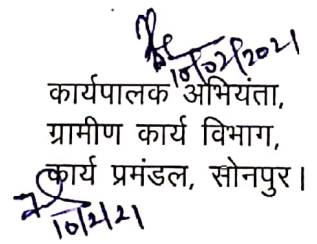 10/02/2021
कार्यपालक अभियंता,
ग्रामीण कार्य विभाग,
कार्य प्रमंडल, सोनपुर।
10/2/21